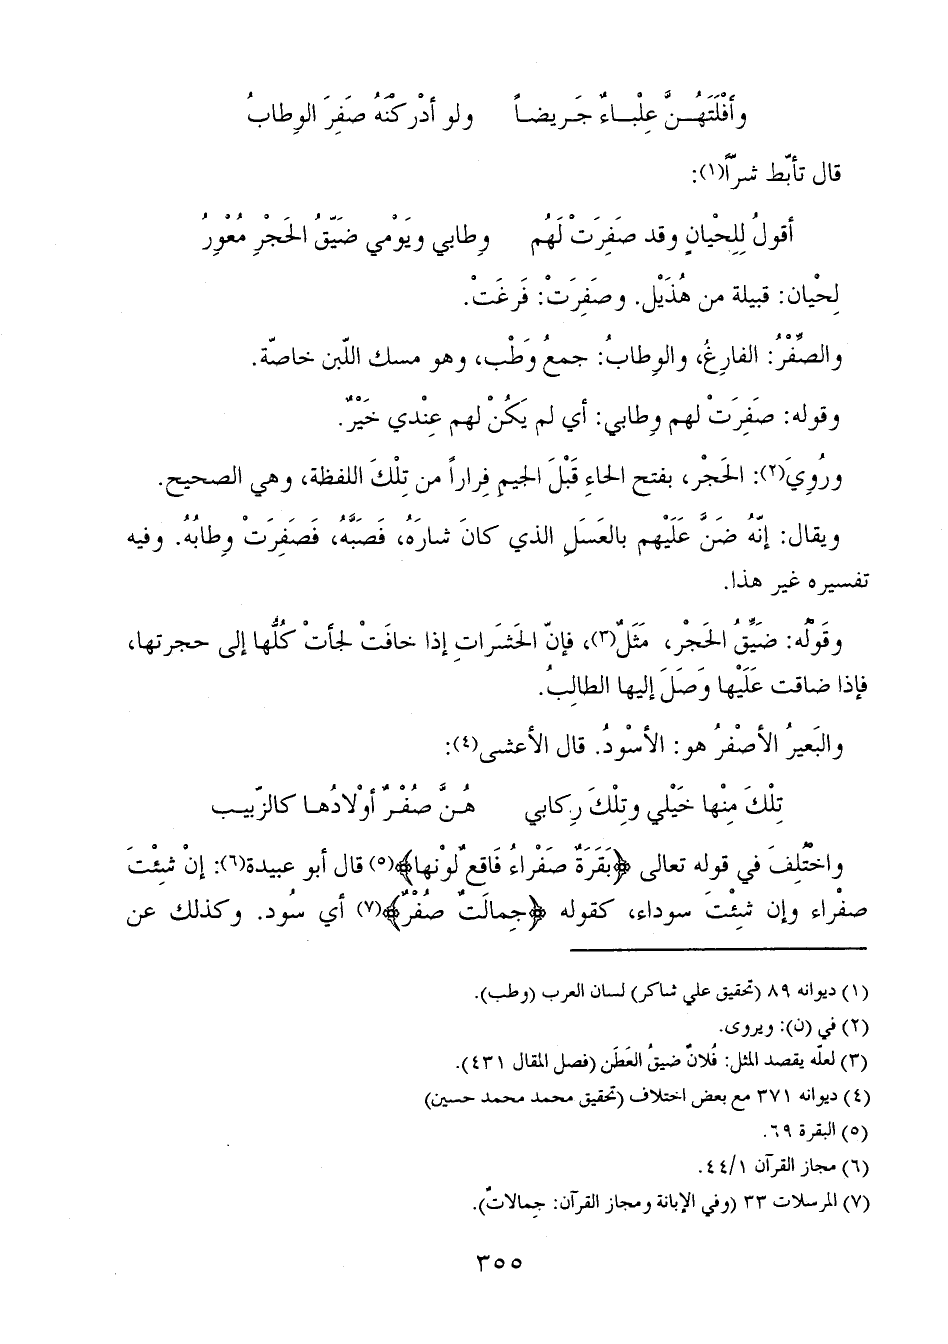 وأفْلَتَهُـنَّ عِلْبـاءٌ جَـريضـاً ولو أدْركْنَهُ صَفِرَ الوِطابُ
قال تأبّط شرّاً(١):
أقولُ لِلِحْيانٍ وقد صَفِرَتْ لَهُم وِطابي ويَوْمي ضَيّقُ الحَجْرِ مُعْوِرُ
لِحْيان: قبيلة من هُذَيْل. وصَفِرَتْ: فَرغَتْ.
والصِّفْرُ: الفارِغُ، والوِطابُ: جمعُ وَطْب، وهو مسك اللّبن خاصّة.
وقوله: صَفِرَتْ لهم وِطابي: أي لم يَكُنْ لهم عِنْدي خَيْرٌ.
ورُوِيَ(٢): الحَجْر، بفتح الحاءِ قَبْلَ الجيمِ فِراراً من تِلْكَ اللفظة، وهي الصحيح.
ويقال: إنّهُ ضَنَّ عَلَيْهم بالعَسَلِ الذي كانَ شارَهُ، فَصَبَّهُ، فَصَفِرَتْ وِطابُهُ. وفيه
تفسيره غير هذا.
وقَوْلُه: ضَيِّقُ الحَجْر، مَثَلٌ(٣)، فإنّ الحَشَراتِ إذا خافَتْ لجأتْ كُلُّها إلى حجرتها،
فإذا ضاقت عَلَيْها وَصَلَ إليها الطالِبُ.
والبَعيرُ الأصْفرُ هو: الأسْودُ. قال الأعشى(٤):
تِلْكَ مِنْها خَيْلي وتِلْكَ رِكابي هُنَّ صُفْرٌ أوْلادُهـا كالزّبيب
واخْتُلِفَ في قوله تعالى ﴿بَقَرَةٌ صَفْراءُ فَاقع لَونْها﴾(٥) قال أبو عبيدة(٦): إنْ شِئْتَ
صفْراء وإن شِئْتَ سوداء، كقوله ﴿جِمالَتٌ صُفْرٌ﴾(٧) أي سُود. وكذلك عن
(١) ديوانه ٨٩ (تحقيق علي شاكر) لسان العرب (وطب).
(٢) في (ن): ويروى.
(٣) لعلّه يقصد المثل: فُلانٌ ضيقُ العَطَن (فصل المقال ٤٣١).
(٤) ديوانه ٣٧١ مع بعض اختلاف (تحقيق محمد محمد حسين)
(٥) البقرة ٦٩.
(٦) مجاز القرآن ٤٤/١.
(٧) المرسلات ٣٣ (وفي الإبانة ومجاز القرآن: جِمالاتٌ).
٣٥٥